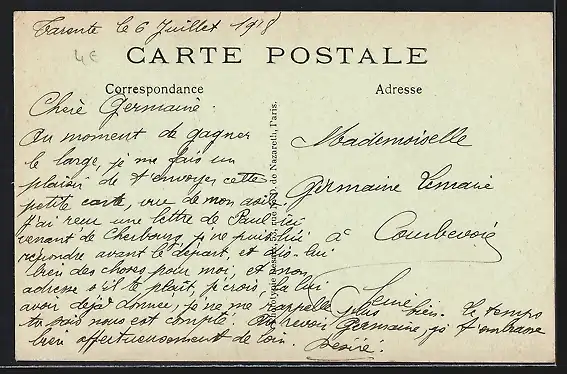 Tarente le 6 Juillet 1918
4€
CARTE POSTALE
Correspondance
Adresse
Chère Germaine :
Au moment de gagner
le large, je me fais un
plaisir de t'envoyer cette
petite carte, vue de mon
J'ai reçu une lettre de Paul
venant de Cherbourg, je ne puis lui
répondre avant le départ, et dis-lui
bien des choses pour moi, et mon
adresse s'il te plaît, je crois la lui
avoir déjà donnée, je ne me rappelle plus bien. Le temps
tu sais nous est compté. Au revoir Germaine, je t'embrasse
bien affectueusement de loin. Désiré.
Mademoiselle
Germaine Lemaire
à Courbevoie
Seine
de Nazareth, Paris.